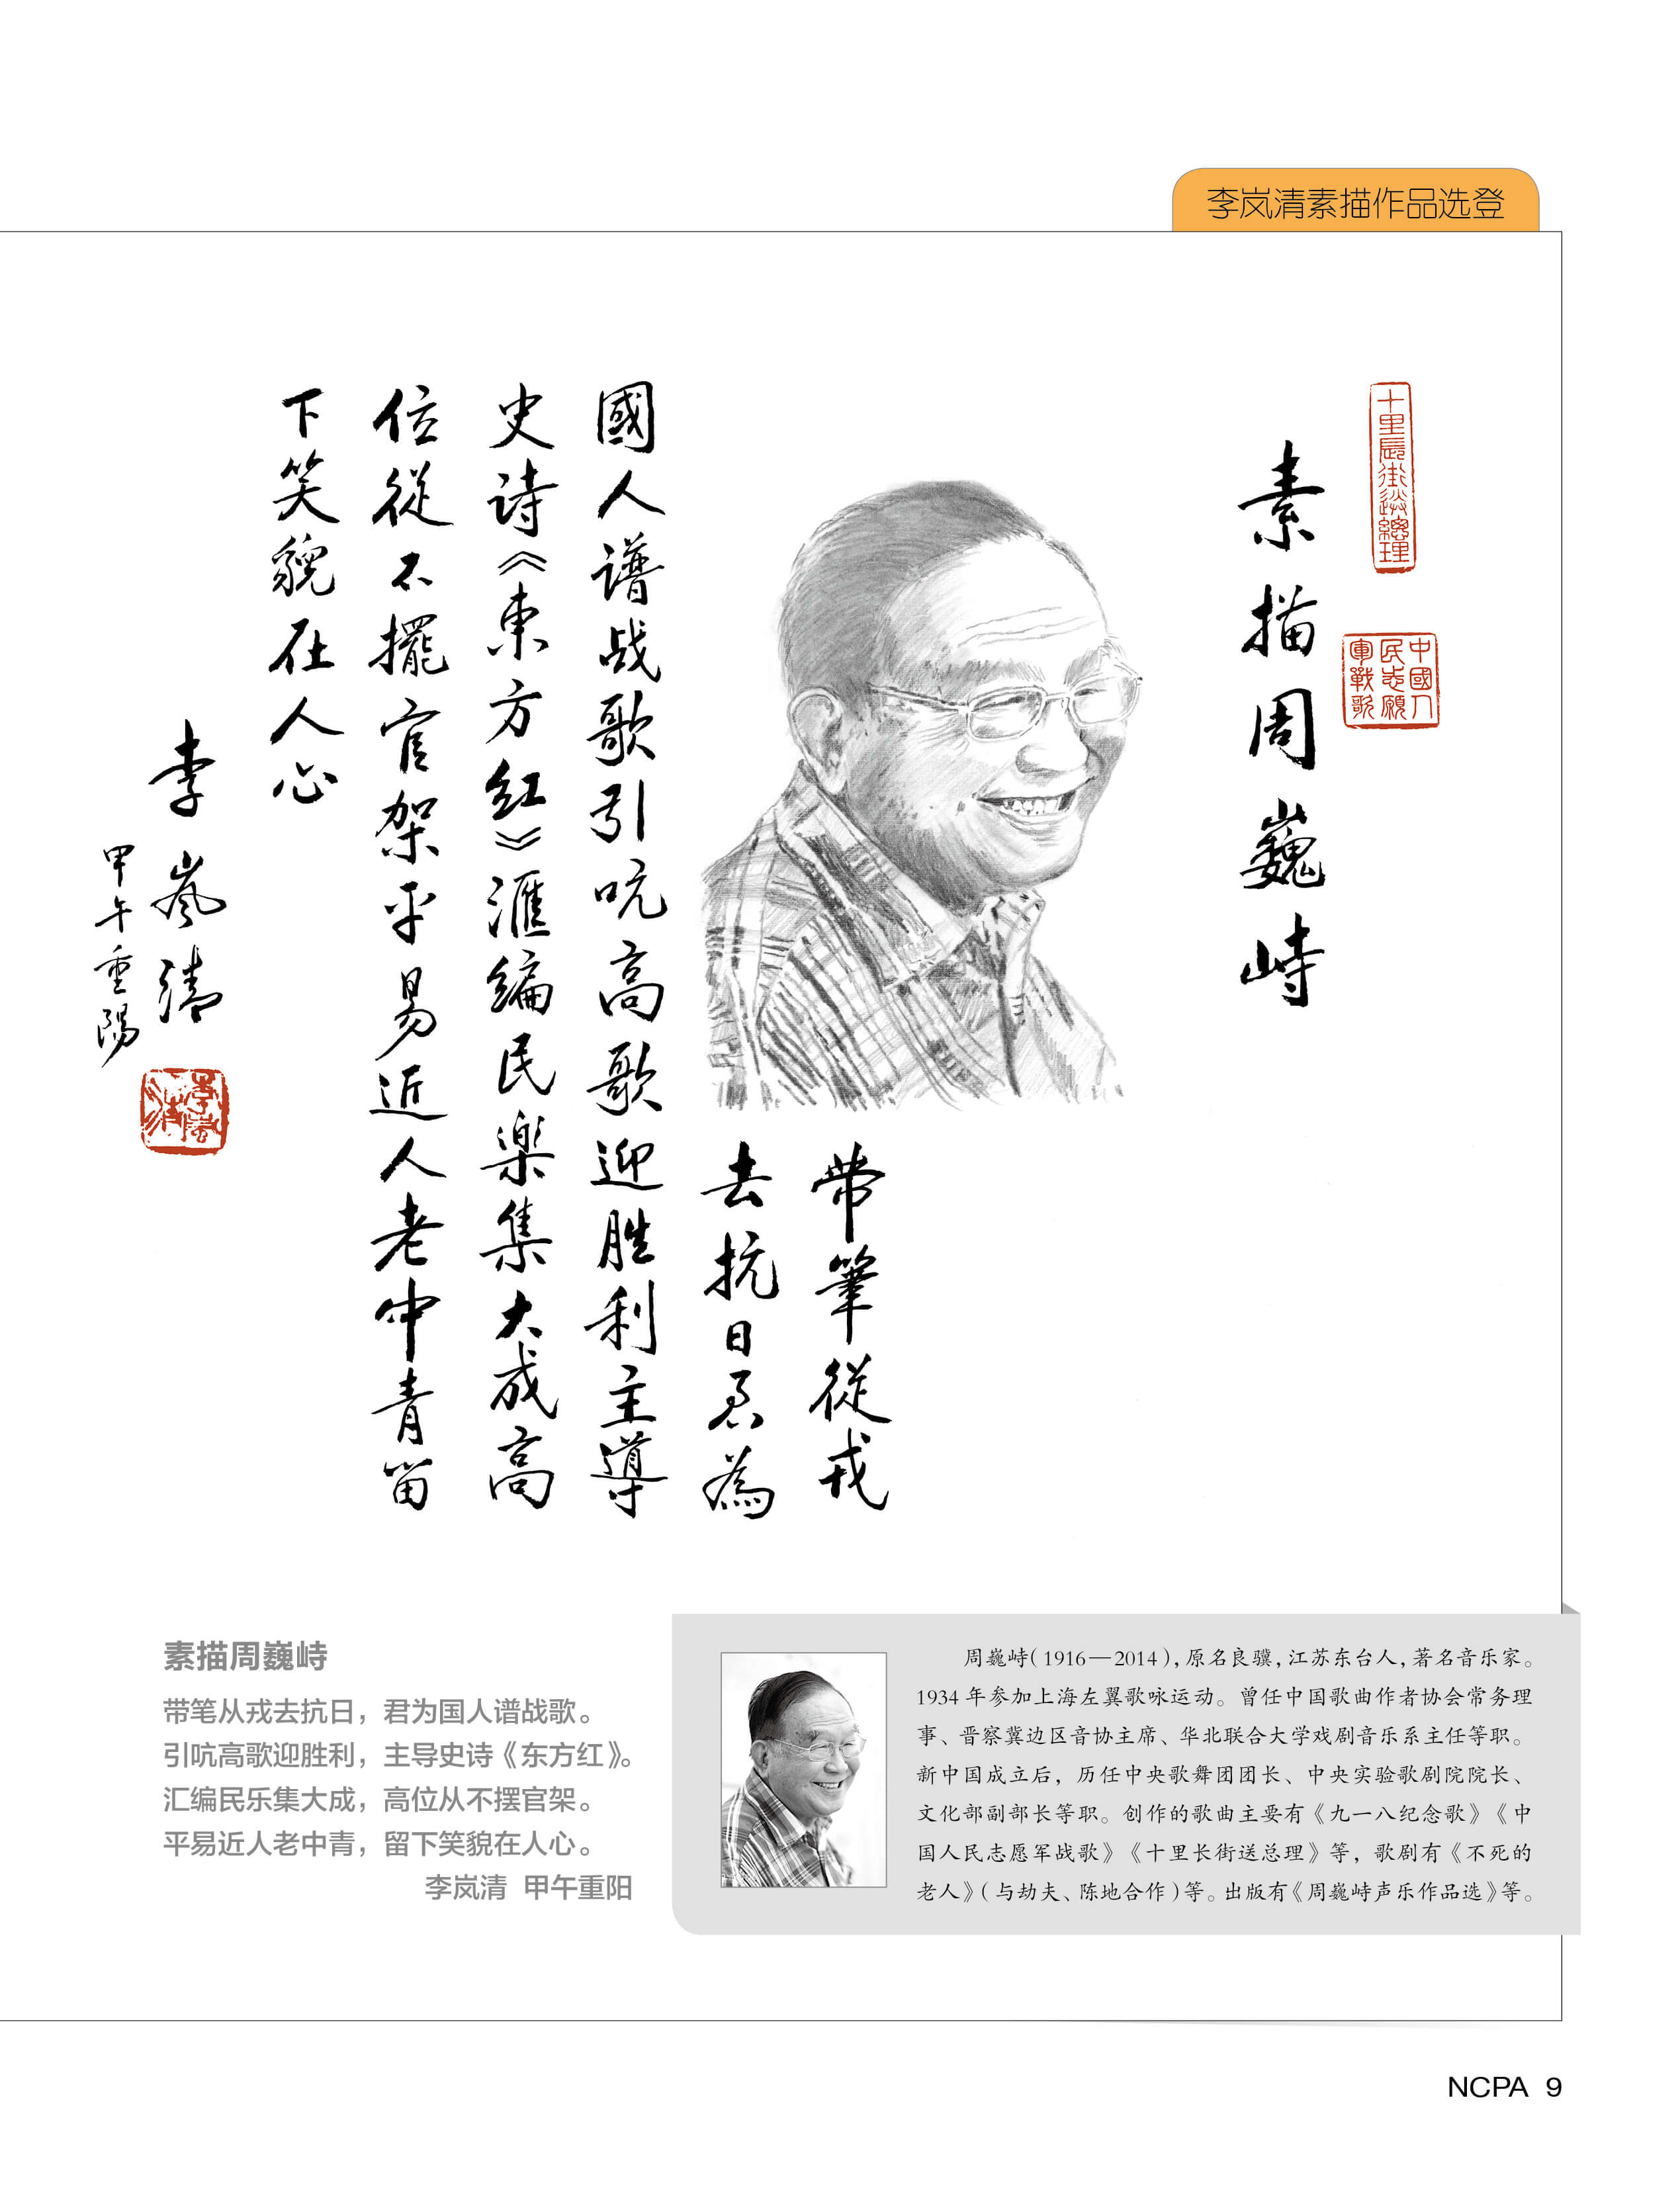 李岚清素描作品选登
十里長街送總理
中國人
民志願
軍戰歌
素描周巍峙
带筆從戎
去抗日君為
國人谱战歌引吭高歌迎胜利主導
史诗《東方红》滙编民楽集大成高
位從不擺官架平易近人老中青留
下笑貌在人心
李嵐清
甲午重陽
素描周巍峙
带笔从戎去抗日，君为国人谱战歌。
引吭高歌迎胜利，主导史诗《东方红》。
汇编民乐集大成，高位从不摆官架。
平易近人老中青，留下笑貌在人心。
李岚清 甲午重阳
周巍峙（1916—2014），原名良骥，江苏东台人，著名音乐家。
1934年参加上海左翼歌咏运动。曾任中国歌曲作者协会常务理
事、晋察冀边区音协主席、华北联合大学戏剧音乐系主任等职。
新中国成立后，历任中央歌舞团团长、中央实验歌剧院院长、
文化部副部长等职。创作的歌曲主要有《九一八纪念歌》《中
国人民志愿军战歌》《十里长街送总理》等，歌剧有《不死的
老人》（与劫夫、陈地合作）等。出版有《周巍峙声乐作品选》等。
NCPA 9